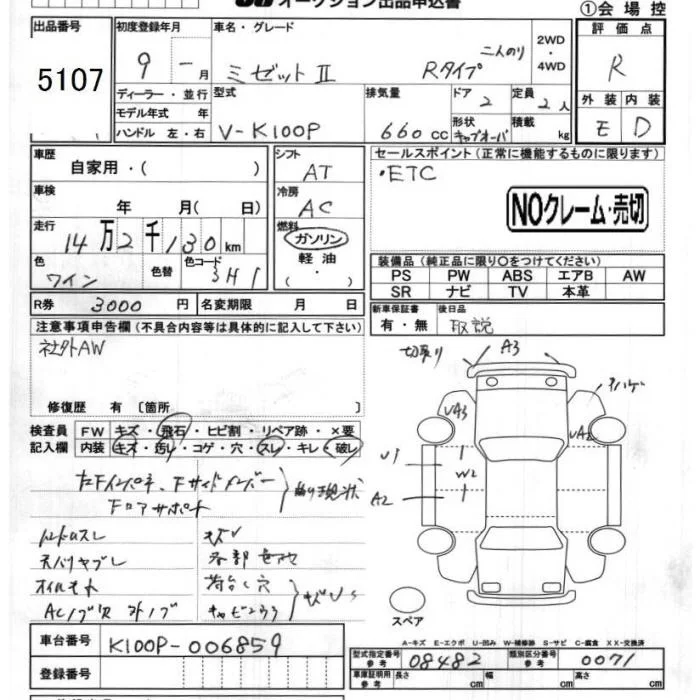 オークション出品申込書
①会場控
出品番号
5107
初度登録年月
9 - 月
車名・グレード
ミゼットⅡ Rタイプ 二人のり
2WD
・
4WD
評価点
R
ディーラー・並行
モデル年式 年
ハンドル 左・右
型式
V-K100P
排気量
660 cc
ドア
2
定員
2人
形状
キャブオーバ
積載
kg
外装 内装
E D
車歴
自家用・( )
シフト
AT
車検
年 月( 日)
冷房
AC
走行
14万2千130km
燃料
ガソリン
軽油
( ・ )
色
ワイン
色替
色コード
3H1
R券 3000 円
名変期限 月 日
セールスポイント(正常に機能するものに限ります)
・ETC
NOクレーム・売切
装備品(純正品に限り○をつけてください)
PS PW ABS エアB AW
SR ナビ TV 本革
新車保証書
有・無
後日品
取説
注意事項申告欄(不具合内容等は具体的に記入して下さい)
社外AW
修復歴 有 〔箇所 〕
検査員
記入欄
FW キズ・飛石・ヒビ割・リペア跡・×要
内装 キズ・汚レ・コゲ・穴・スレ・キレ・破レ
切張り
A3
UA3
UA2
U1
W2
A2
スペア
オイルモレ
A-キズ E-エクボ U-凹み W-補修跡 S-サビ C-腐食 XX-交換済
車台番号
K100P-006859
登録番号
型式指定番号
参考
08482
類別区分番号
参考
0071
車庫証明用
参考
長さ cm
幅 cm
高さ cm